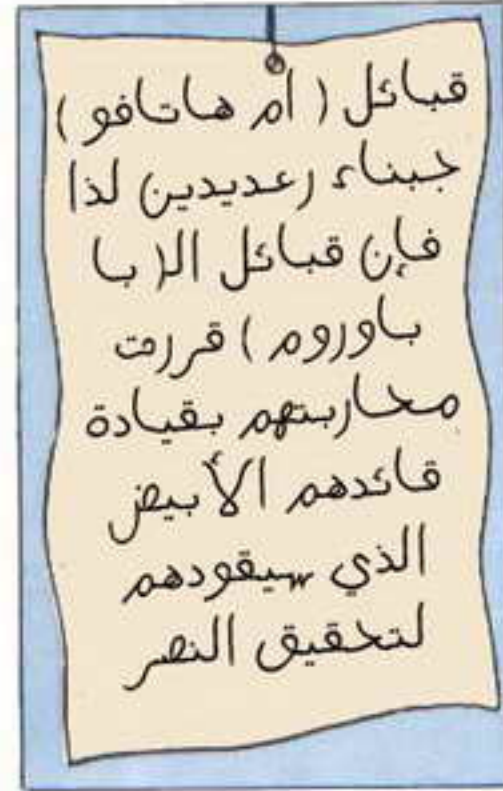 قبائل ( ام هاتافو )
جبناء رعديدين لذا
فإن قبائل ال( با
باوروم ) قررت
محاربتهم بقيادة
قائدهم الأبيض
الذي سيقودهم
لتحقيق النصر